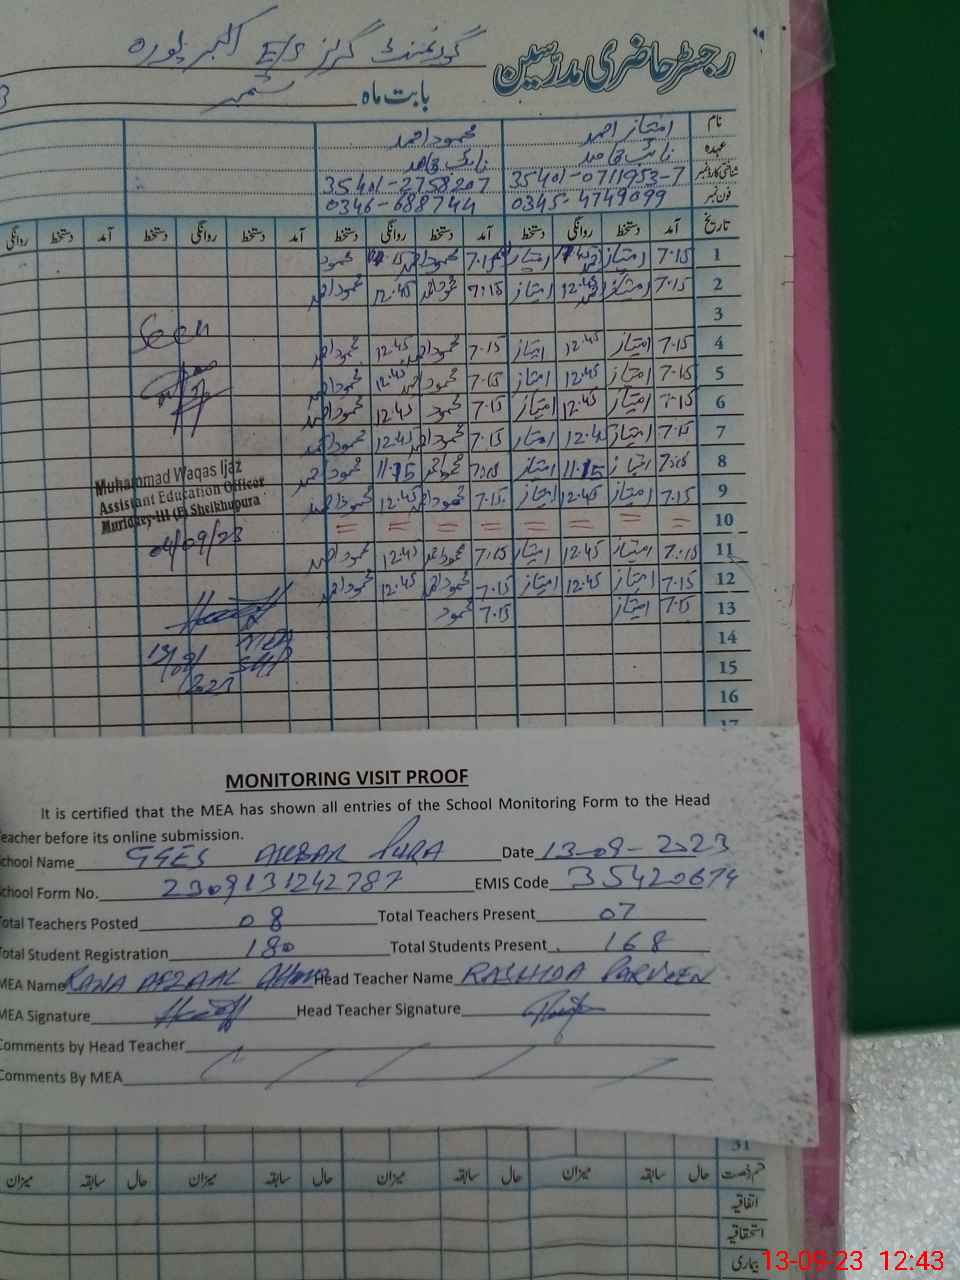 گورنمنٹ گرلز E/S اکبر پورہ
رجسٹر حاضری مدرسین
بابت ماہ ستمبر
نام امتیاز احمد محمود احمد
عہدہ نائب قاصد نائب قاصد
شناختی کارڈ نمبر 35401-0711953-7 35401-2758207
فون نمبر 0345-4749099 0346-688744
تاریخ آمد دستخط روانگی دستخط آمد دستخط روانگی دستخط آمد دستخط روانگی دستخط آمد دستخط روانگی
1 7.15 امتیاز 12.45 امتیاز 7.15 محمود احمد 12.45 محمود
2 7.15 امتیاز 12.45 امتیاز 7.15 محمود احمد 12.45 محمود احمد
3
Seen
4 7.15 امتیاز 12.45 امتیاز 7.15 محمود احمد 12.45 محمود احمد
5 7.15 امتیاز 12.45 امتیاز 7.15 محمود احمد 12.45 محمود احمد
6 7.15 امتیاز 12.45 امتیاز 7.15 محمود 12.45 محمود احمد
7 7.15 امتیاز 12.4 امتیاز 7.15 محمود احمد 12.45 محمود احمد
8 7.15 امتیاز 11.15 امتیاز 7.15 محمود احمد 11.15 محمود احمد
9 7.15 امتیاز 12.45 امتیاز 7.15 محمود احمد 12.45 محمود احمد
Muhammad Waqas Ijaz
Assistant Education Officer
Muridkey-III (F) Sheikhupura
04/09/23
10 = = = = = = = =
11 7.15 امتیاز 12.45 امتیاز 7.15 محمود احمد 12.45 محمود احمد
12 7.15 امتیاز 12.45 امتیاز 7.15 محمود احمد 12.45 محمود احمد
13 7.15 امتیاز 7.15 محمود
14
MEA
SKP
13/09/2023
15
16
17
MONITORING VISIT PROOF
It is certified that the MEA has shown all entries of the School Monitoring Form to the Head
eacher before its online submission.
chool Name GGES AKBAR PURA Date 13-09-2023
chool Form No. 2309131242787 EMIS Code 35420674
otal Teachers Posted 08 Total Teachers Present 07
otal Student Registration 180 Total Students Present 168
MEA Name RANA AFZAAL AHMAD Head Teacher Name RASHIDA PARVEEN
MEA Signature Head Teacher Signature
Comments by Head Teacher
Comments By MEA
31
قسم رخصت حال سابقہ میزان حال سابقہ میزان حال سابقہ میزان حال سابقہ میزان
اتفاقیہ
استحقاقیہ
بیماری
13-09-23 12:43